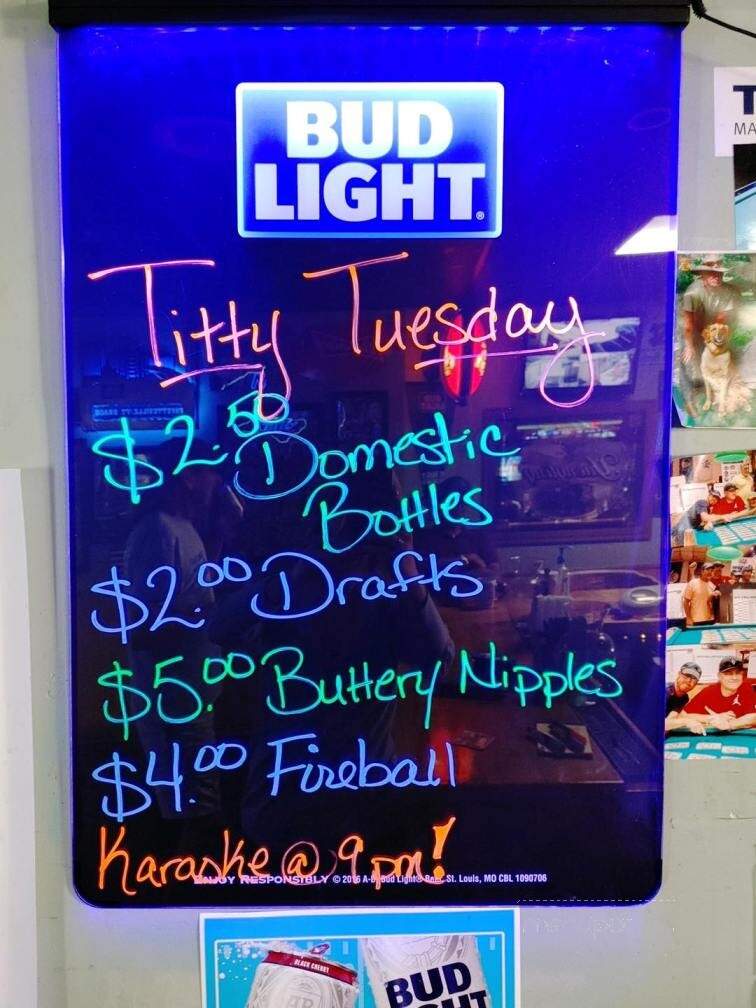 BUD
LIGHT
Titty Tuesday
$2.50 Domestic
Bottles
$2.00 Drafts
$5.00 Buttery Nipples
$4.00 Fireball
Karaoke @ 9 pm!
ENJOY RESPONSIBLY © 2016 A-B, Bud Light® Beer, St. Louis, MO CBL 1090706
T
MA
BLACK CHERRY
BUD
LIGHT